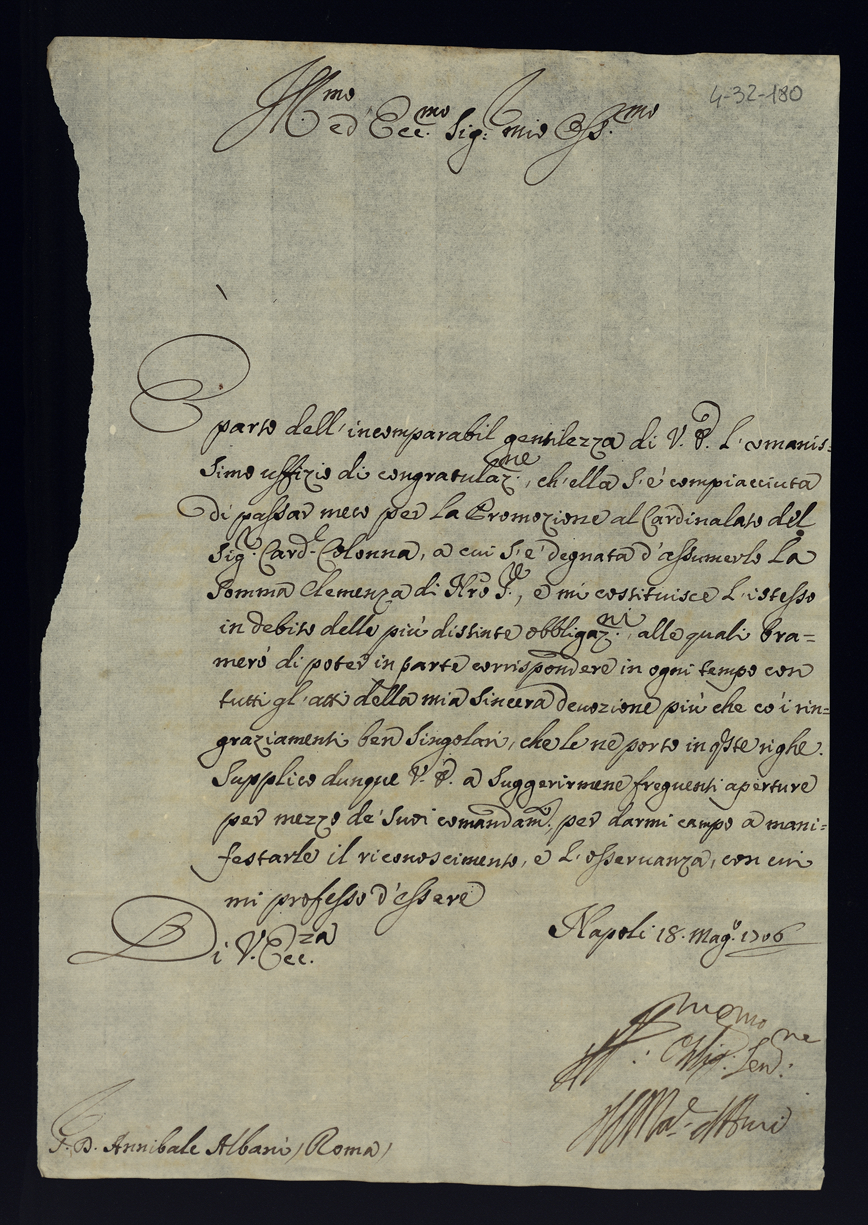 4-32-180
Ill.mo ed Ecc.mo Sig.r mio Oss.mo
È parto dell'incomparabil gentilezza di V. E. l'omanis=
simo uffizio di congratulaz.ne, ch'ella s'è compiacciuta
di passar meco per la Promozione al Cardinalato del
Sig.r Card.l Colonna, a cui s'è degnata d'assumerlo la
somma Clemenza di Nro S.re, e mi costituisce l'istesso
in debito delle più distinte obbligaz.ni, alle quali bra=
merò di poter in parte corrispondere in ogni tempo con
tutti gl'atti della mia sincera devozione più che co'i rin=
graziamenti ben singolari, che le ne porto in q.ste righe.
Supplico dunque V. E. a suggerirmene frequenti aperture
per mezzo de' suoi comandam.ti per darmi campo a mani=
festarle il riconoscimento, e l'osservanza, con cui
mi professo d'essere
Di V. Ecc.za
Napoli 18. Mag.o 1706
S. D. Annibale Albani (Roma)